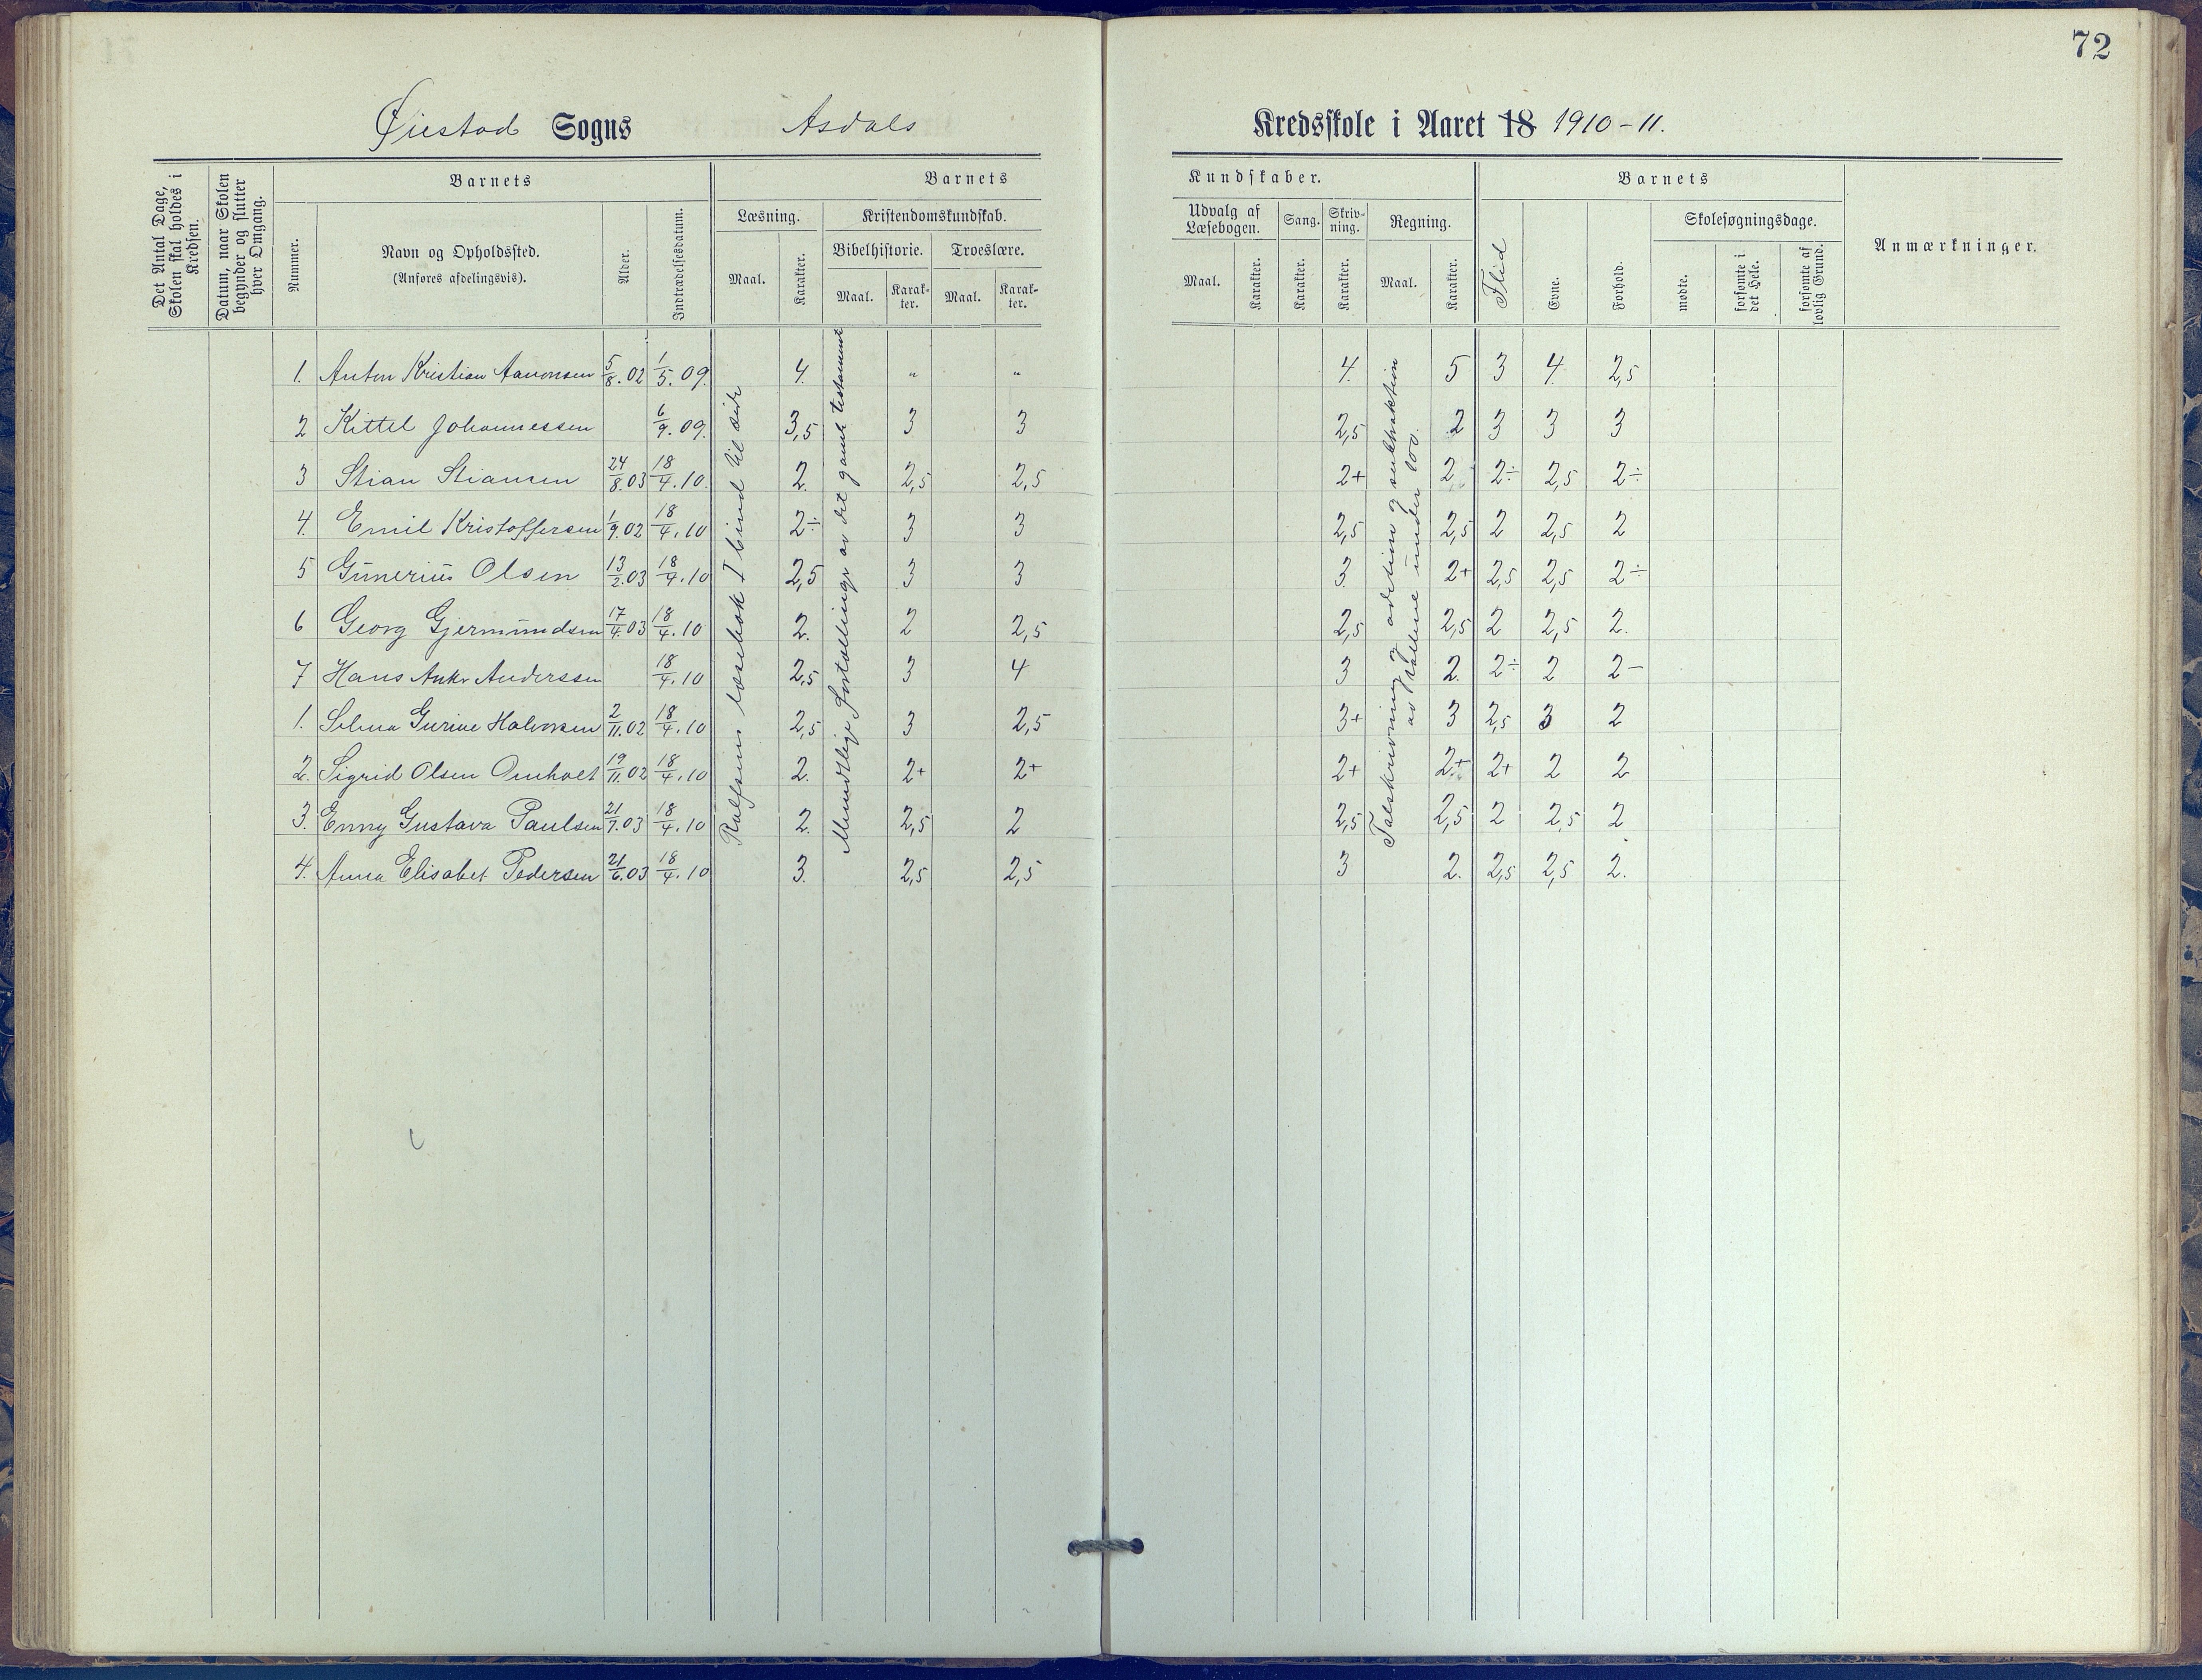 72
Øiestad Sogns Asdals Kredsskole i Aaret 18 1910-11.
Det Antal Dage, Skolen skal holdes i Kredsen.
Datum, naar Skolen begynder og slutter hver Omgang.
Barnets
Nummer.
Navn og Opholdssted.
(Anføres afdelingsvis).
Alder.
Indtrædelsesdatum.
Barnets Kundskaber.
Læsning.
Maal.
Karakter.
Kristendomskundskab.
Bibelhistorie.
Maal.
Karakter.
Troeslære.
Maal.
Karakter.
Udvalg af Læsebogen.
Maal.
Karakter.
Sang.
Karakter.
Skrivning.
Karakter.
Regning.
Maal.
Karakter.
Barnets
Flid
Evne.
Forhold.
Skolesøgningsdage.
mødte.
forsømte i det Hele.
forsømte af lovlig Grund.
Anmærkninger.
Rolfsens læsebok I bind til side
Mundtlige fortællinger av det gamle testament
Talskrivning og addition og subtraktion
av tallene under 100.
1. Anton Kristian Aanonsen 5/8.02 1/5.09. 4. " " 4. 5 3 4. 2,5
2 Kittel Johannessen 6/9.09. 3,5 3 3 2,5 2 3 3 3
3 Stian Stiansen 24/8.03 18/4.10. 2. 2,5 2,5 2+ 2 2÷ 2,5 2÷
4. Emil Kristoffersen 1/9.02 18/4.10 2÷ 3 3 2,5 2,5 2 2,5 2
5 Gunerius Olsen 13/2.03 18/4.10 2,5 3 3 3 2+ 2,5 2,5 2÷
6 Georg Gjermundsen 17/4.03 18/4.10 2. 2 2,5 2,5 2,5 2 2,5 2.
7 Hans Anker Anderssen 18/4.10 2,5 3 4 3 2. 2÷ 2 2-
1. Selma Gurine Halvorsen 2/11.02 18/4.10 2,5 3 2,5 3+ 3 2,5 3 2
2. Sigrid Olsen Omholt 19/11.02 18/4.10 2. 2+ 2+ 2+ 2+ 2+ 2 2
3. Enny Gustava Paulsen 21/7.03 18/4.10 2. 2,5 2 2,5 2,5 2 2,5 2
4. Anna Elisabet Pedersen 21/6.03 18/4.10 3. 2,5 2,5 3 2. 2,5 2,5 2.